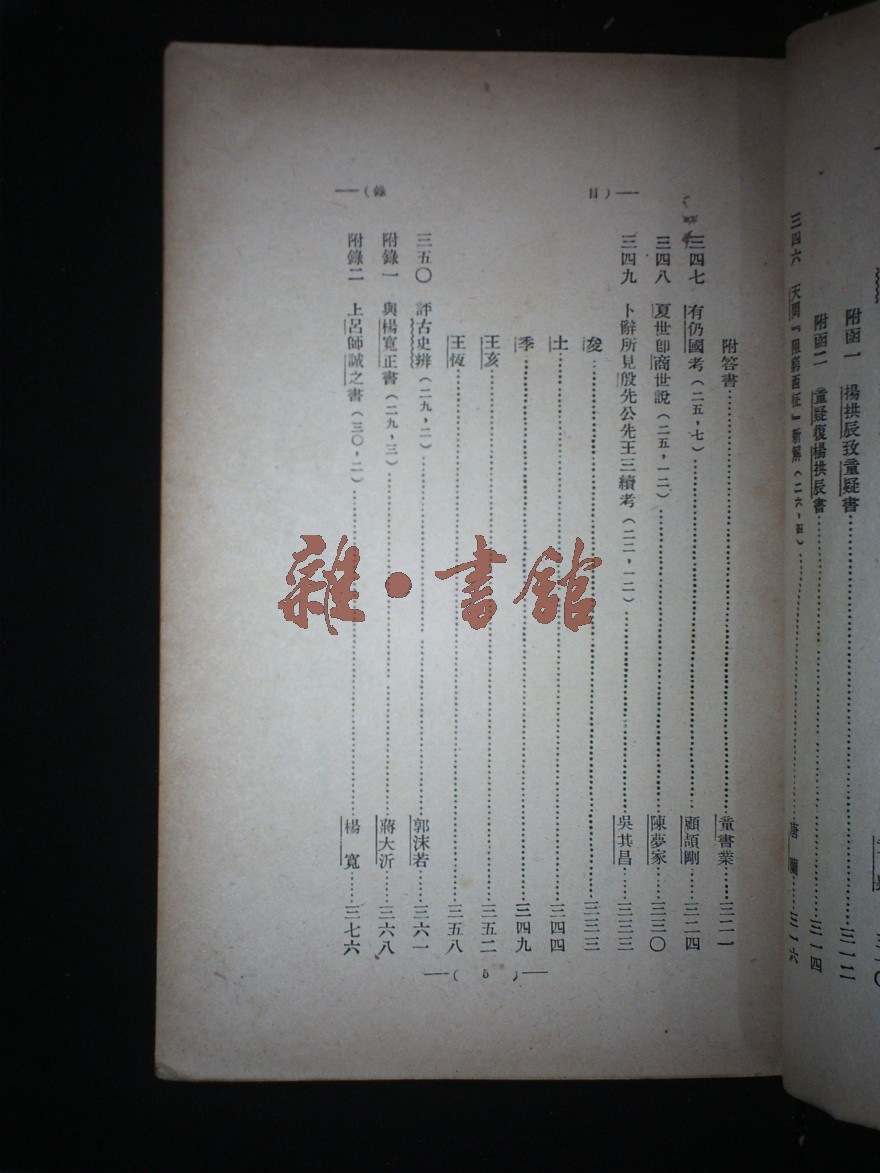 附函一　楊拱辰致童疑書……三一二
附函二　童疑復楊拱辰書……三一四
三四六　天問『阻窮西征』新解(二六，四)……唐　蘭……三一六
——(錄　目)——
附答書……童書業……三二一
三四七　有仍國考(二五，七)……顧頡剛……三二四
三四八　夏世卽商世說(二五，一二)……陳夢家……三三〇
三四九　卜辭所見殷先公先王三續考(二二，一二)……吳其昌……三三三
夋……三三三
土……三四四
季……三四九
王亥……三五二
王恆……三五八
三五〇　評古史辨(二九，二)……郭沫若……三六一
附錄一　與楊寬正書(二九，三)……蔣大沂……三六八
附錄二　上呂師誠之書(三〇，二)……楊　寬……三七六
——(5)——
雜·書館